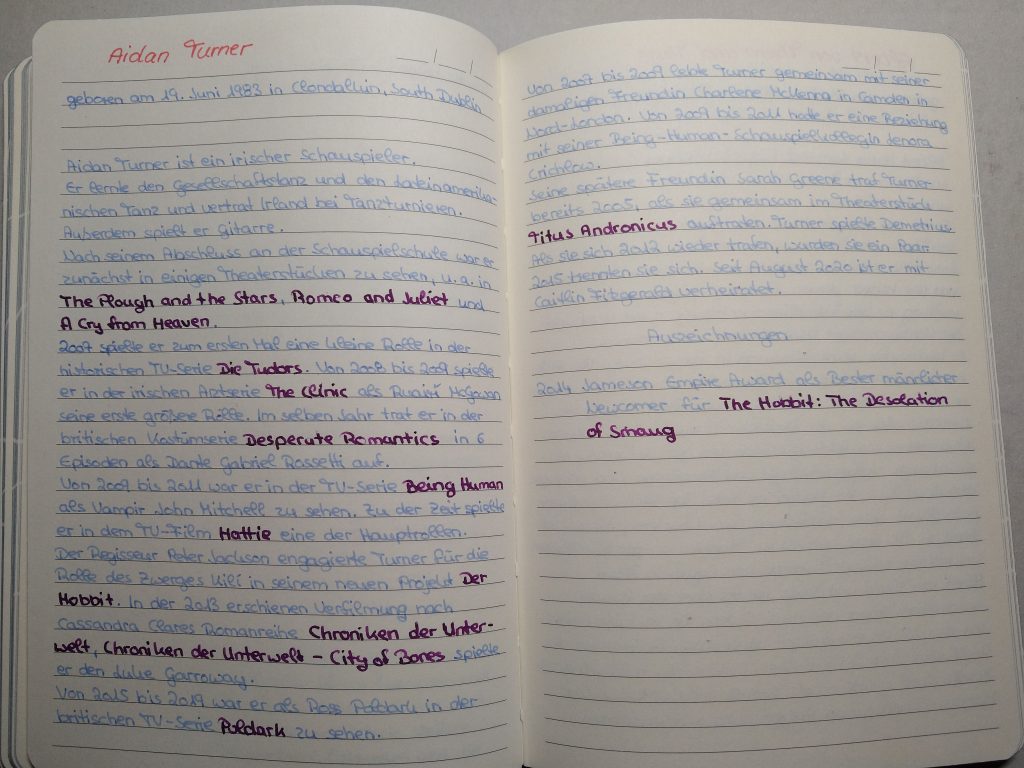 Aidan Turner
geboren am 19. Juni 1983 in Clondalkin, South Dublin
Aidan Turner ist ein irischer Schauspieler.
Er lernte den Gesellschaftstanz und den lateinamerika-
nischen Tanz und vertrat Irland bei Tanzturnieren.
Außerdem spielt er Gitarre.
Nach seinem Abschluss an der Schauspielschule war er
zunächst in einigen Theaterstücken zu sehen, u. a. in
The Plough and the Stars, Romeo and Juliet und
A Cry from Heaven.
2007 spielte er zum ersten Mal eine kleine Rolle in der
historischen TV-Serie Die Tudors. Von 2008 bis 2009 spielte
er in der irischen Arztserie The Clinic als Ruairí McGowan
seine erste größere Rolle. Im selben Jahr trat er in der
britischen Kostümserie Desperate Romantics in 6
Episoden als Dante Gabriel Rossetti auf.
Von 2009 bis 2011 war er in der TV-Serie Being Human
als Vampir John Mitchell zu sehen. Zu der Zeit spielte
er in dem TV-Film Hattie eine der Hauptrollen.
Der Regisseur Peter Jackson engagierte Turner für die
Rolle des Zwerges Kili in seinem neuen Projekt Der
Hobbit. In der 2013 erschienen Verfilmung nach
Cassandra Clares Romanreihe Chroniken der Unter-
welt, Chroniken der Unterwelt – City of Bones spielte
er den Luke Garroway.
Von 2015 bis 2019 war er als Ross Poldark in der
britischen TV-Serie Poldark zu sehen.
Von 2007 bis 2009 lebte Turner gemeinsam mit seiner
damaligen Freundin Charlene McKenna in Camden in
Nord-London. Von 2009 bis 2011 hatte er eine Beziehung
mit seiner Being-Human-Schauspielkollegin Lenora
Crichlow.
Seine spätere Freundin Sarah Greene traf Turner
bereits 2005, als sie gemeinsam im Theaterstück
Titus Andronicus auftraten. Turner spielte Demetrius.
Als sie sich 2012 wieder trafen, wurden sie ein Paar
2015 trennten sie sich. Seit August 2020 ist er mit
Caitlin Fitzgerald verheiratet.
Auszeichnungen
2014 Jameson Empire Award als Bester männlicher
Newcomer für The Hobbit: The Desolation
of Smaug